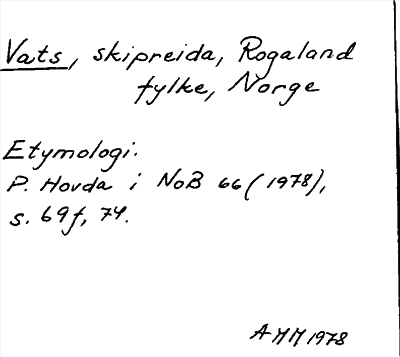 Vats, skipreida, Rogaland
fylke, Norge
Etymologi.
P. Hovda i NoB 66 (1978),
s. 69f, 74.
AMM 1978